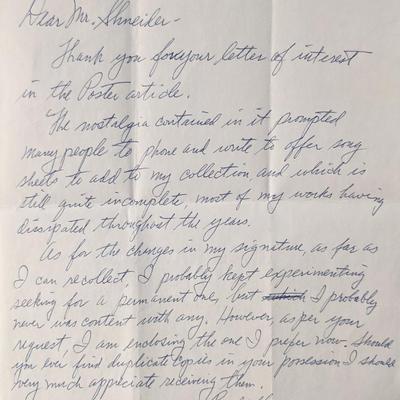 Dear Mr. Shneider -
Thank you for your letter of interest
in the Poster article.
The nostalgia contained in it prompted
many people to phone and write to offer song
sheets to add to my collection and which is
still quite incomplete, most of my works having
dissipated throughout the years.
As for the changes in my signature, as far as
I can recollect, I probably kept experimenting
seeking for a permanent one, but I probably
never was content with any. However, as per your
request, I am inclosing the one I prefer now. Should
you ever find duplicate copies in your possession I should
very much appreciate receiving them.